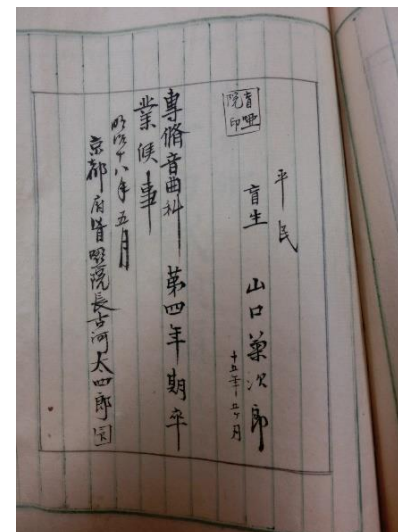 盲唖
院印
平民
盲生 山口菊次郎
十五年五ケ月
専脩音曲科 第四年期卒
業候事
明治十八年五月
京都府盲唖院長古河太四郎 印